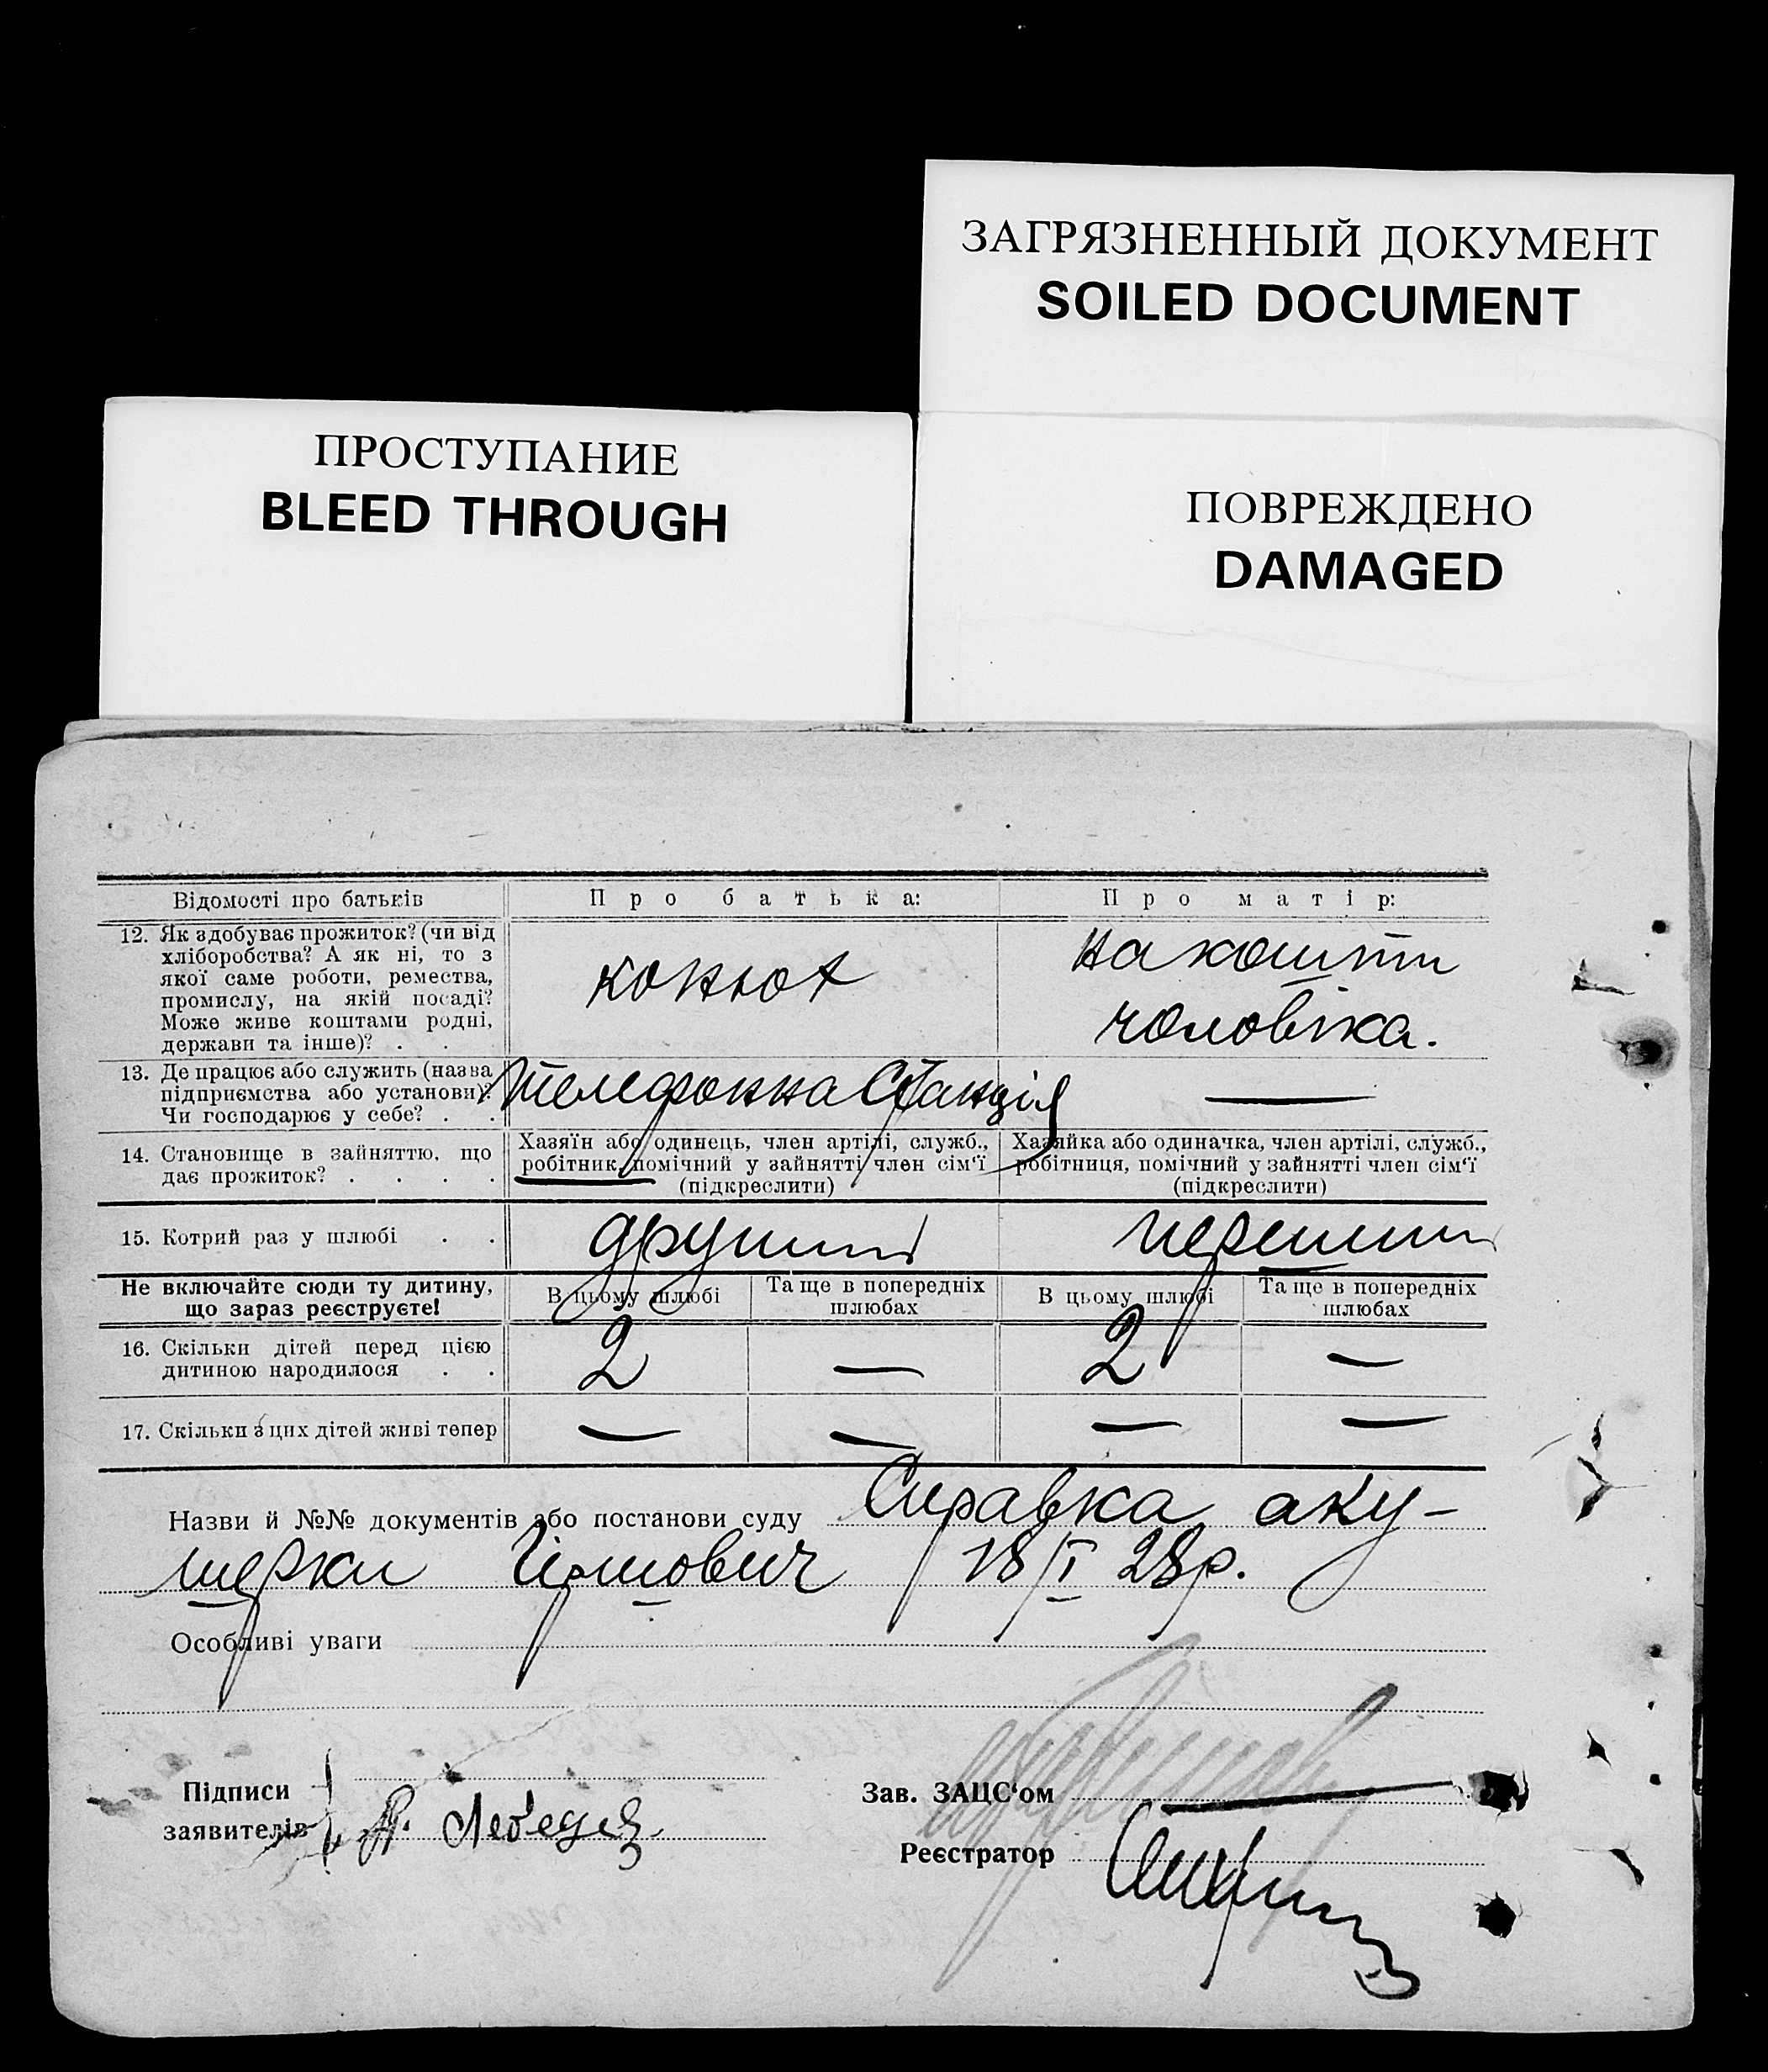 ЗАГРЯЗНЕННЫЙ ДОКУМЕНТ
SOILED DOCUMENT
ПРОСТУПАНИЕ
BLEED THROUGH
ПОВРЕЖДЕНО
DAMAGED
Відомості про батьків
Про батька:
Про матір:
12. Як здобуває прожиток? (чи від
хліборобства? А як ні, то з
якої саме роботи, ремества,
промислу, на якій посаді?
Може живе коштами родні,
держави та інше)? .
конюх
на кошти
чоловіка.
13. Де працює або служить (назва
підприємства або установи)?
Чи господарює у себе? . .
Телефонна Станція
—
14. Становище в зайняттю, що
дає прожиток? . . . .
Хазяїн або одинець, член артілі, служб.,
робітник, помічний у зайнятті член сім'ї
(підкреслити)
Хазяйка або одиначка, член артілі, служб.,
робітниця, помічний у зайнятті член сім'ї
(підкреслити)
15. Котрий раз у шлюбі . .
другий
перший
Не включайте сюди ту дитину,
що зараз реєструєте!
В цьому шлюбі
Та ще в попередніх
шлюбах
В цьому шлюбі
Та ще в попередніх
шлюбах
16. Скільки дітей перед цією
дитиною народилося . .
2 — 2 —
17. Скільки з цих дітей живі тепер
— — — —
Назви й №№ документів або постанови суду Справка аку-
шерки 18/I 28р.
Особливі уваги
Підписи
заявителів
Зав. ЗАЦС'ом
Реєстратор